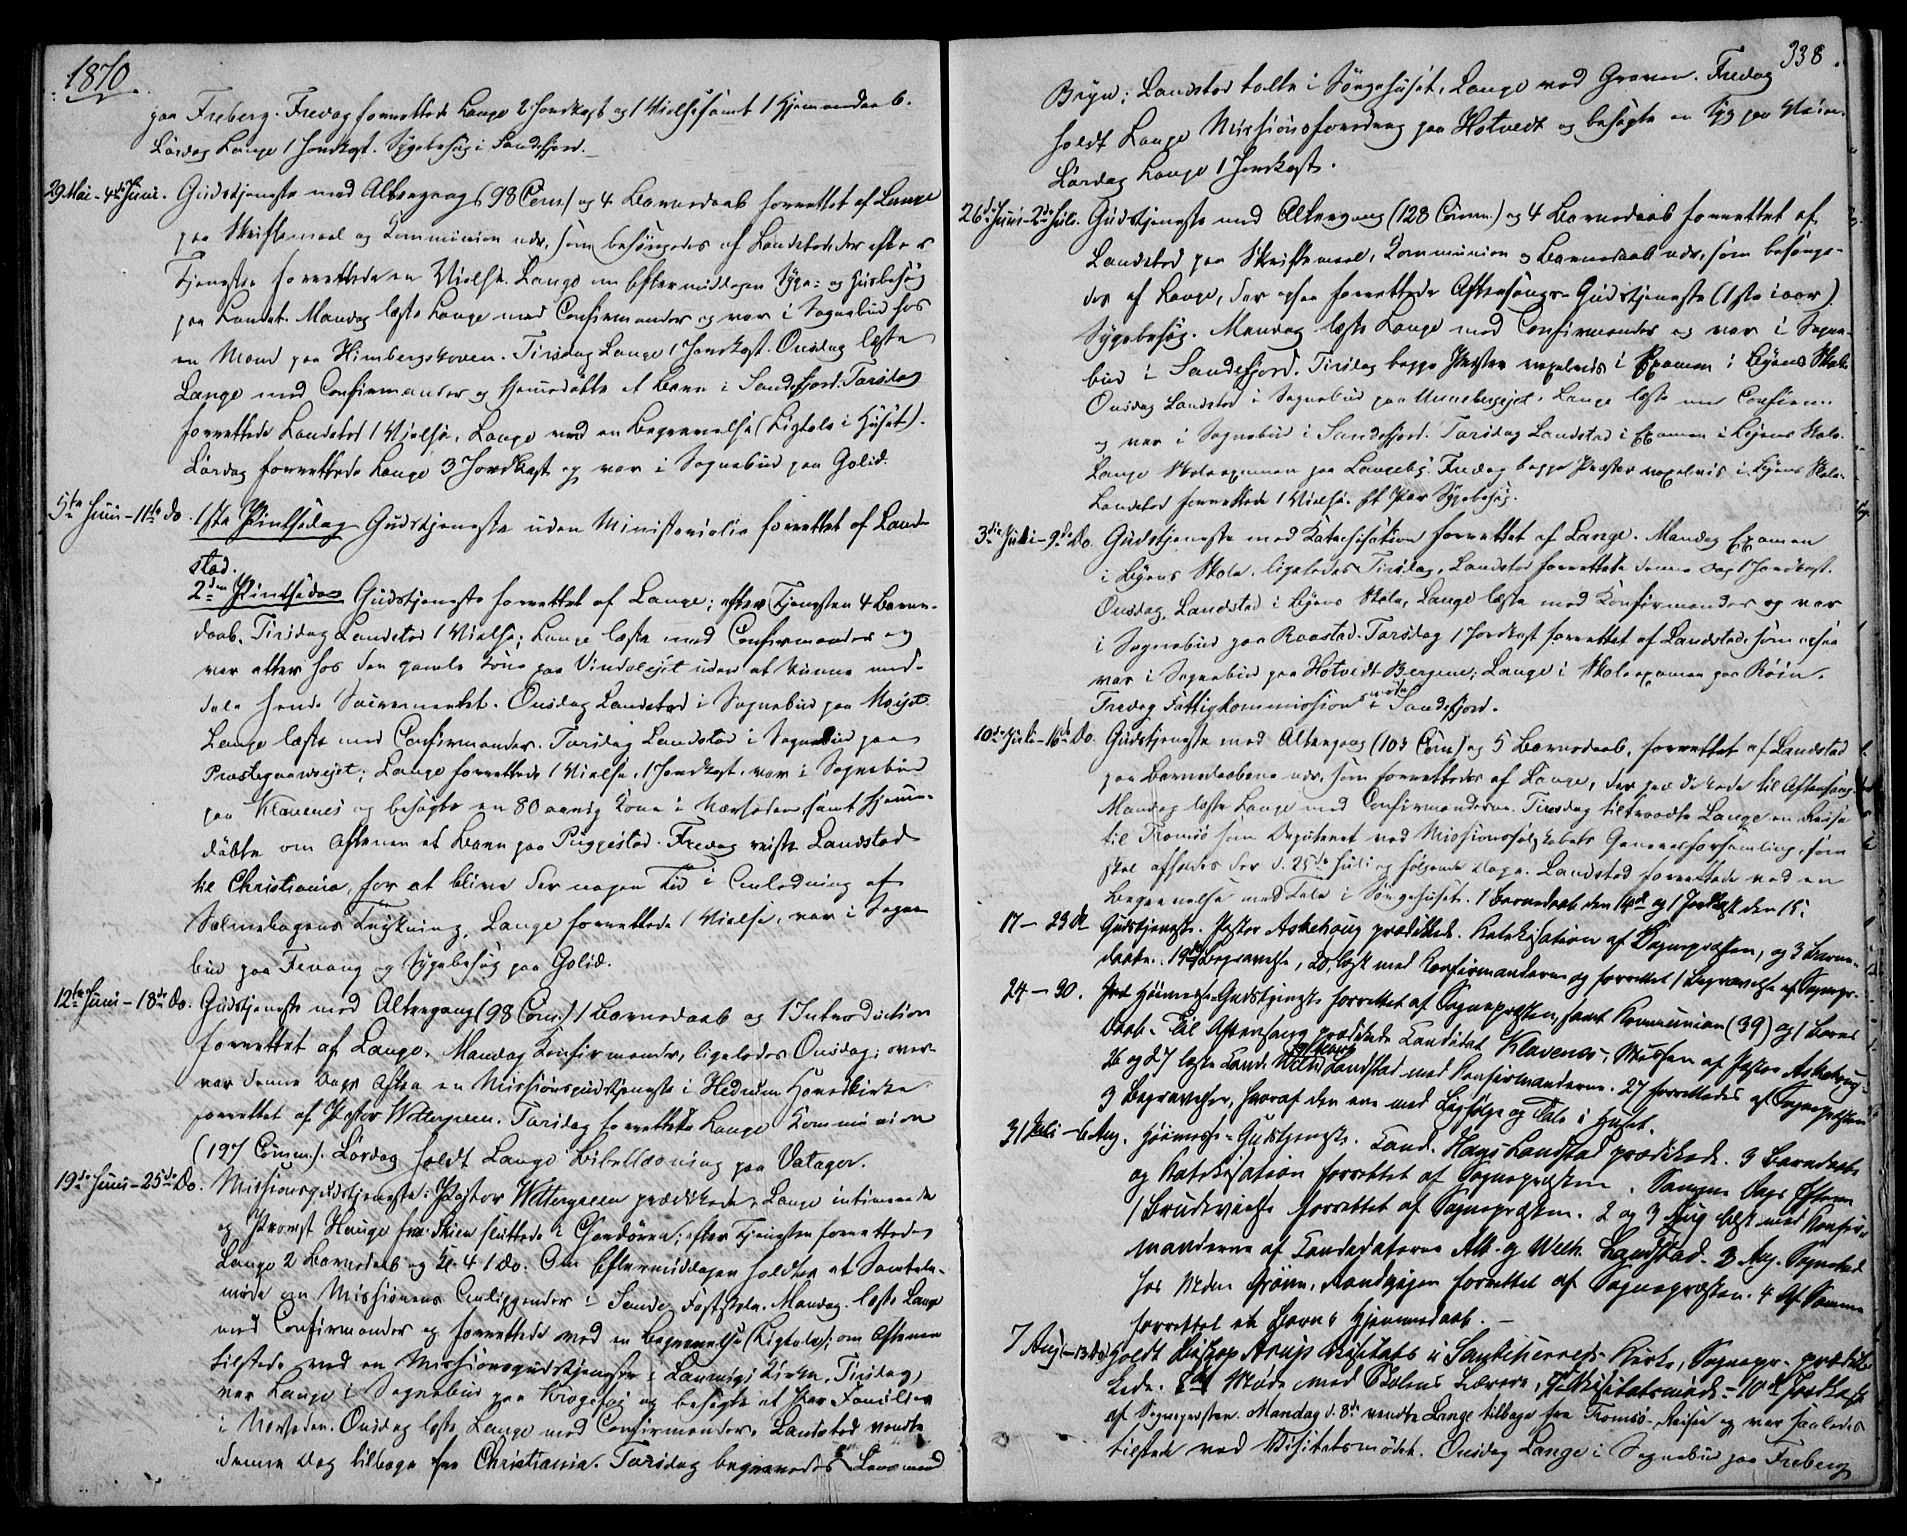 1870.
paa Freberg. Fredag forrettede Lange 2 Jordkast og 1 Vielse samt 1 Hjemmedaab.
Lørdag Lange 1 Jordkast. Sygebesøg i Sandefjord.
29 Mai - 4de Juni. Gudstjeneste med Altergang (98 Com.) og 4 Barnedaab forrettet af Lange
paa Skriftemaal og Kommunion nær, som besørgedes af Landstad, der efter
Tjenesten forrettede en Vielse. Lange om Eftermiddagen Syge- og Husbesøg
paa Landet. Mandag læste Lange med Confirmander og var i Sognebud hos
en Mand paa Himbergskoven. Tirsdag Lange 1 Jordkast. Onsdag læste
Lange med Confirmander og hjemmedøbte et Barn i Sandefjord. Torsdag
forrettede Landstad 1 Vielse. Lange ved en Begravelse (Ligtale i Huset).
Lørdag forrettede Lange 3 Jordkast og var i Sognebud paa Golid.
5te Juni - 11te do. 1ste Pintsedag Gudstjeneste uden Ministerialia forrettet af Land-
stad.
2den Pintsedag Gudstjeneste forrettet af Lange; efter Tjenesten 4 Barne-
daab. Tirsdag Landstad 1 Vielse; Lange læste med Confirmander og
var atter hos den gamle Kone paa Vindalejet uden at kunne med-
dele hende Sacramentet. Onsdag Landstad i Sognebud paa
Lange læste med Confirmander. Torsdag Landstad i Sognebud paa
Præstegaardsejet; Lange forrettede 1 Vielse, 1 Jordkast, var i Sognebud
paa Klavenes og besøgte en 80 aarig Kone i Nærheden samt hjemme-
døbte om Aftenen et Barn paa Puggestad. Fredag reiste Landstad
til Christiania, for at blive der nogen Tid i Anledning af
Salmebogens Trykning. Lange forrettede 1 Vielse, var i Sogne-
bud paa Fevang og Sygebesøg paa Golid.
12te Juni - 18de do. Gudstjeneste med Altergang (98 Com.) 1 Barnedaab og 1 Introduction
forrettet af Lange. Mandag Konfirmander, ligeledes Onsdag; over-
var denne Dags Aften en Missionsgudstjeneste i Hedrum Hovedkirke
forrettet af Pastor Wettergreen. Torsdag forrettede Lange Kommunion
(127 Comm.). Lørdag holdt Lange Bibellæsning paa Vatager.
19de Juni - 25de Do. Missionsgudstjeneste: Pastor Wettergreen prædikede, Lange intimerede
og Provst Hauge fra Skien sluttede i Chordøren; efter Tjenesten forrettede
Lange 2 Barnedaab og Kl. 4 1 do. Om Eftermiddagen holdtes et Samtale-
møde om Missionens Anliggender i Sande Fastskole. Mandag læste Lange
med Confirmander og forrettede ved en Begravelse (Ligtale); om Aftenen
tilstede ved en Missionsgudstjeneste i Laurvigs Kirke. Tirsdag
var Lange i Sognebud paa Krogshøj og besøgte et Par Familier
i Nærheden. Onsdag læste Lange med Confirmander. Landstad vendte
denne Dag tilbage fra Christiania. Torsdag begravedes
338.
Bryn: Landstad talte i Sørgehuset, Lange ved Graven. Fredag
holdt Lange Missionsforedrag paa Hotvedt og besøgte en Syg paa
Lørdag Lange 1 Jordkast.
26de Juni - 2den Juli. Gudstjeneste med Altergang (128 Comm.) og 4 Barnedaab forrettet af
Landstad paa Skriftemaal, Kommunion og Barnedaab nær, som besørge-
des af Lange, der ogsaa forrettede Aftensangs-Gudstjeneste (1ste i aar).
Sygebesøg. Mandag læste Lange med Confirmander og var i Sogne-
bud i Sandefjord. Tirsdag begge Præster vexelvis i Examen i Byens Skole.
Onsdag Landstad i Sognebud paa Unnebergejet. Lange læste med Confirm.
og var i Sognebud i Sandefjord. Torsdag Landstad i Examen i Byens Skole.
Lange Skoleexamen paa Langeby. Fredag begge Præster vexelvis i Byens Skole.
Landstad forrettede 1 Vielse. Et Par Sygebesøg.
3die Juli - 9de Do. Gudstjeneste med Katechisation forrettet af Lange. Mandag Examen
i Byens Skole, ligeledes Tirsdag, Landstad forrettede denne Dag 1 Jordkast.
Onsdag, Landstad i Byens Skole, Lange læste med Konfirmander og var
i Sognebud paa Raastad. Torsdag 1 Jordkast forrettet af Landstad, som ogsaa
var i Sognebud paa Hotvedt-Bergene; Lange i Skoleexamen paa Röim.
Fredag Fattigkommissionsmøde i Sandefjord.
10de Juli - 16de Do. Gudstjeneste med Altergang (103 Com.) og 5 Barnedaab, forrettet af Landstad
paa Barnedaabene nær, som forrettedes af Lange, der prædikede til Aftensang.
Mandag læste Lange med Confirmanderne. Tirsdag tiltraadte Lange en Reise
til Tromsö som Deputeret ved Missionsselskabets Generalforsamling, som
skal afholdes der d. 25de Juli og følgende Dage. Landstad forrettede ved en
Begravelse med Tale i Sørgehuset. 1 Barnedaab den 14de og 1 Jordkast den 15.
17 - 23 d. Gudstjeneste. Pastor Askehoug prædikede. Katekisation af Sognepræsten, og 3 Barne-
daabe. 19de Begravelse, 20. læst med Konfirmanderne og forrettet 1 Begravelse af Sognepr.
24 - 30. Høimesse-Gudstjeneste forrettet af Sognepræsten, samt Kommunion (39) og 1 Barne-
daab. Til Aftensang prædikede Kandidat Klavenes, Messen af Pastor Askehoug.
26 og 27 læste Cand. Wilh. Landstad med Konfirmanderne. 27 forrettedes af Sognepræsten
3 Begravelser, hvoraf den ene med Ligfølge og Tale i Huset.
31 Juli - 6 Aug. Høimesse-Gudstjeneste. Cand. Hans Landstad prædikede. 3 Barnedaabe
og Katekisation forrettet af Sognepræsten. Samme Dags Aften
1 Brudevielse forrettet af Sognepræsten. 2 og 3 Aug læst med Konfir-
manderne af Candidaterne Alb. og Wilh. Landstad. 3 Aug. Sognebud
hos Madm Grønn, Sandvigen forrettet af Sognepræsten. 4 af Samme
forrettet et Barns Hjemmedaab.
7 Aug. - 13 do. Holdt Biskop Arup Visitats i Sandeherreds Kirke, Sognepr. prædi-
kede. 8de Møde med Skolens Lærere, Visitatsmøde. - 10de Jordkast
af Sognepræsten. Mandag d. 8de vendte Lange tilbage fra Tromsö-Reisen og var saaledes
tilstede ved Visitatsmødet. Onsdag Lange i Sognebud paa Freberg